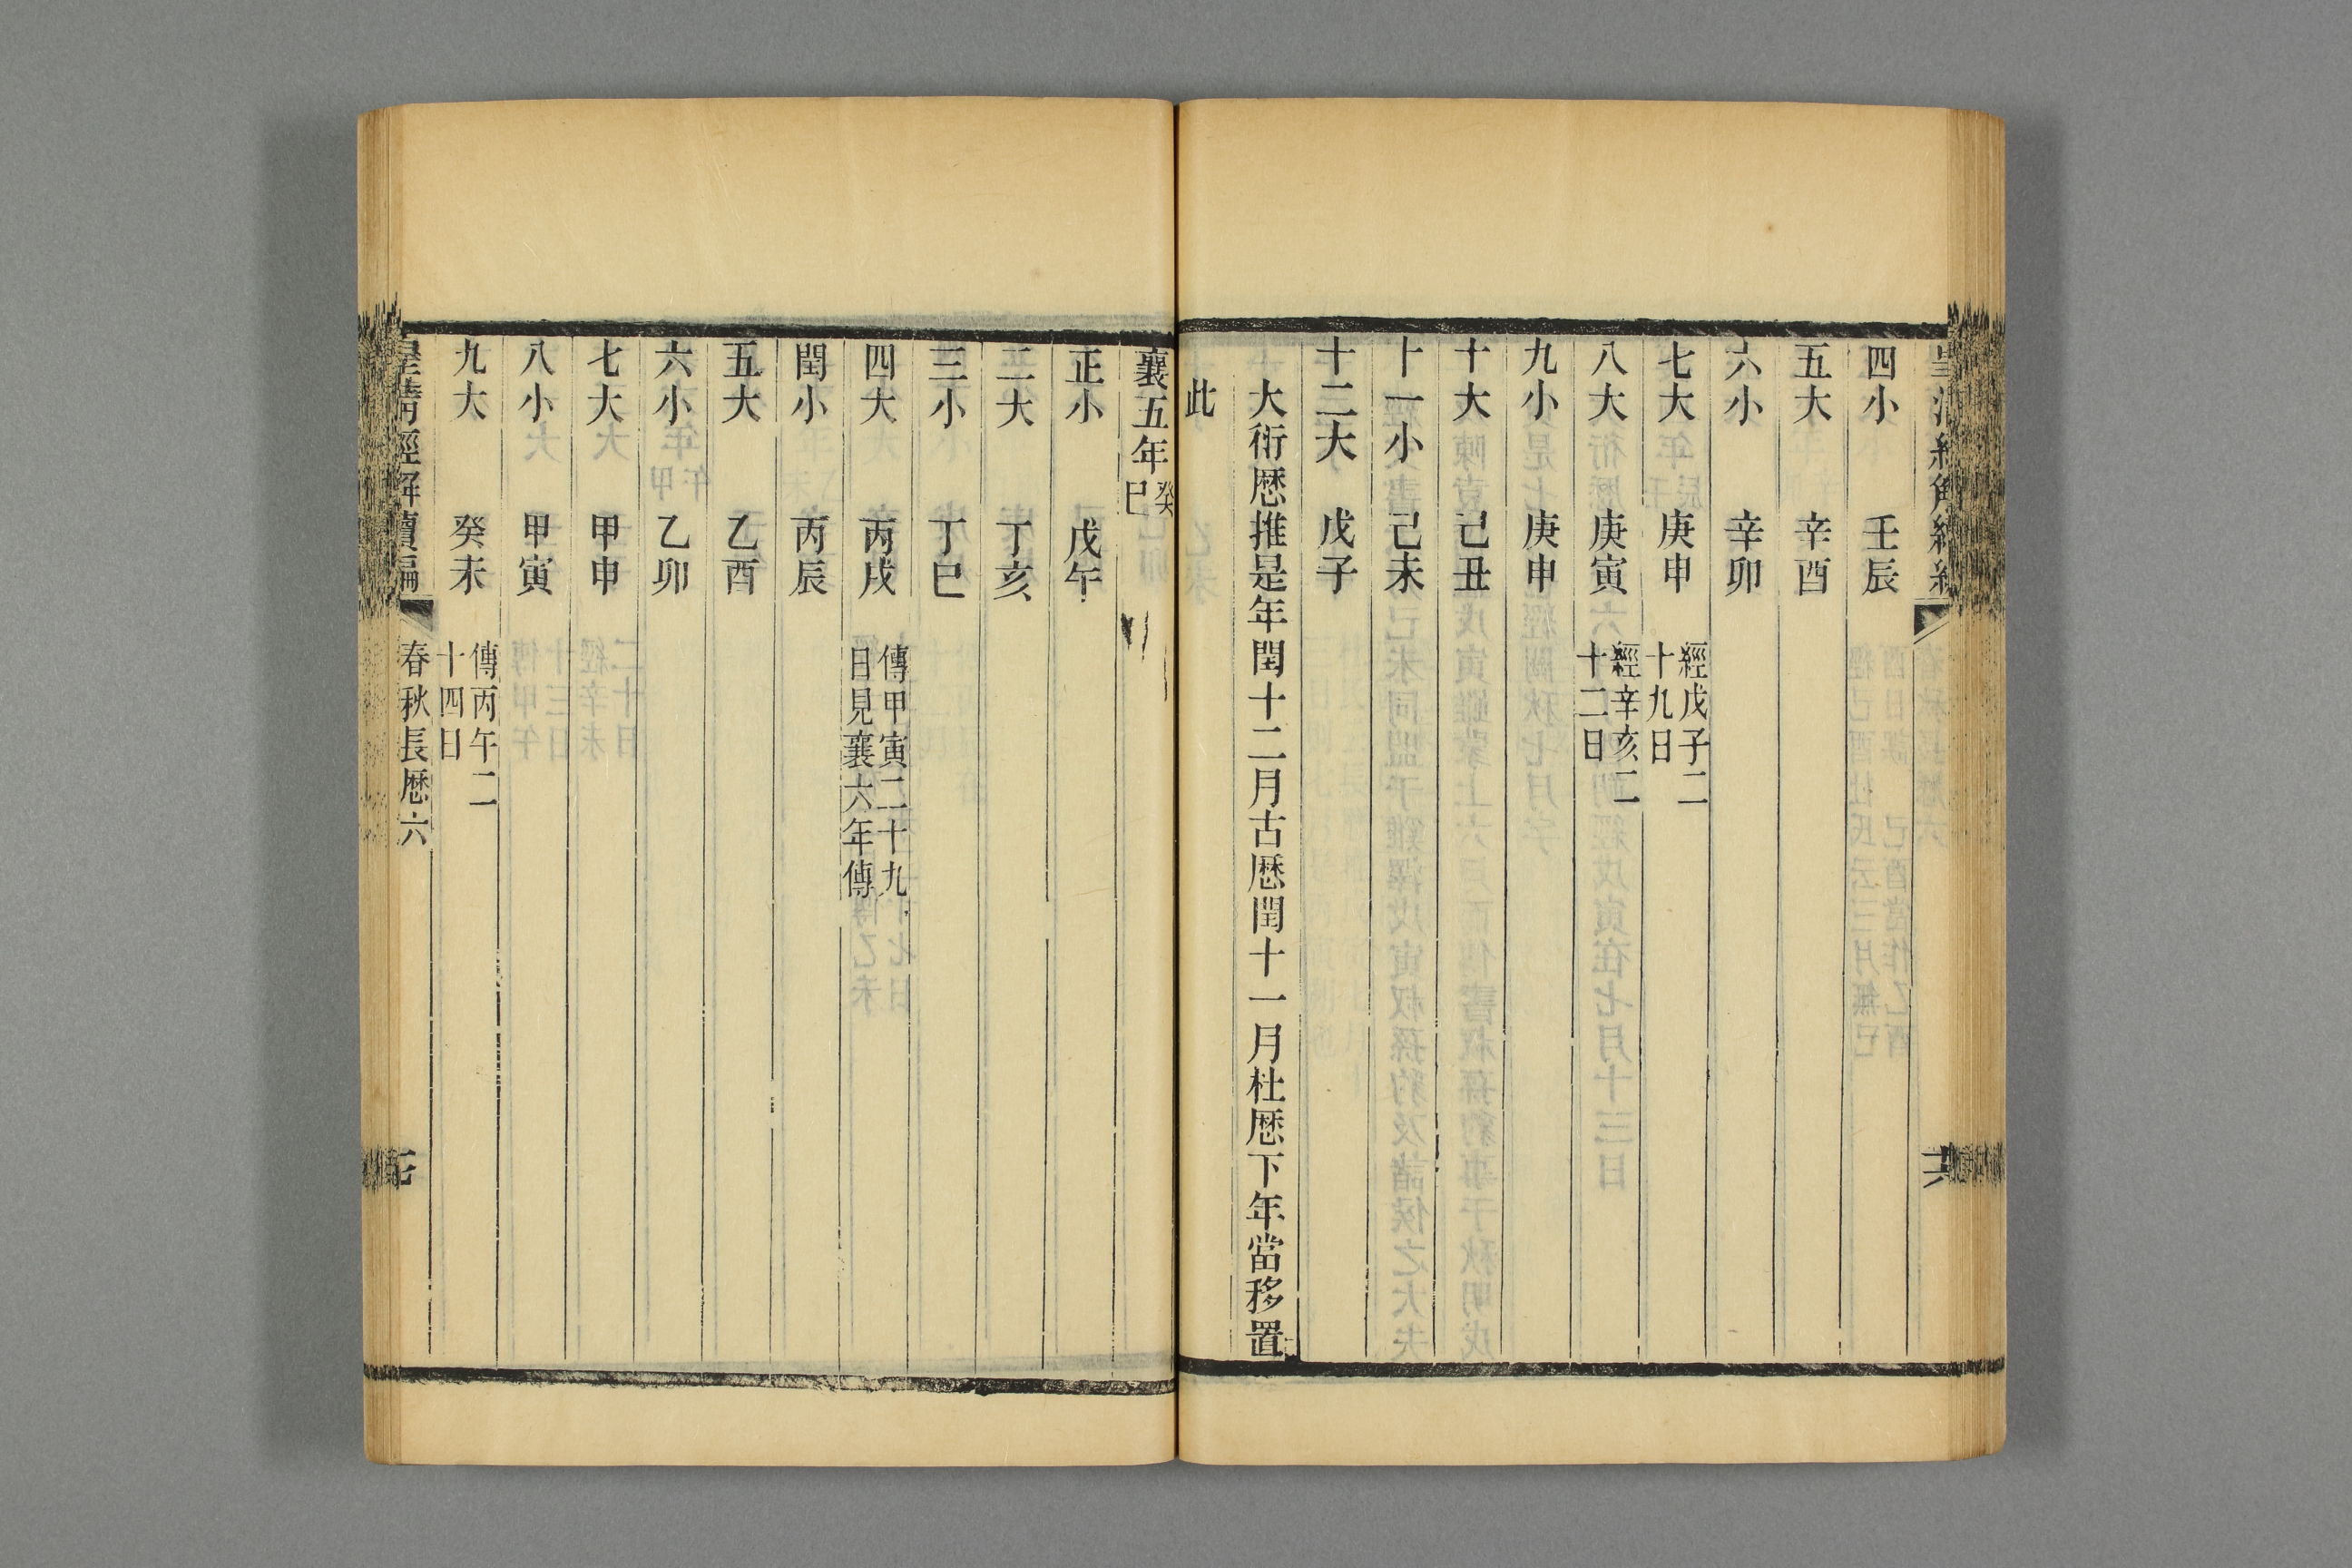 四小　壬辰
五大　辛酉
六小　辛卯
七大　庚申　經戊子二
十九日
八大　庚寅　經辛亥二
十二日
九小　庚申
十大　己丑
十一小　己未
十二大　戊子
大衍厯推是年閏十二月古厯閏十一月杜厯下年當移置
此
襄五年癸
巳
正小　戊午
二大　丁亥
三小　丁巳
四大　丙戌　傳甲寅二十九
日見襄六年傳
閏小　丙辰
五大　乙酉
六小　乙卯
七大　甲申
八小　甲寅
九大　癸未　傳丙午二
十四日
皇清經解續編　春秋長厯六